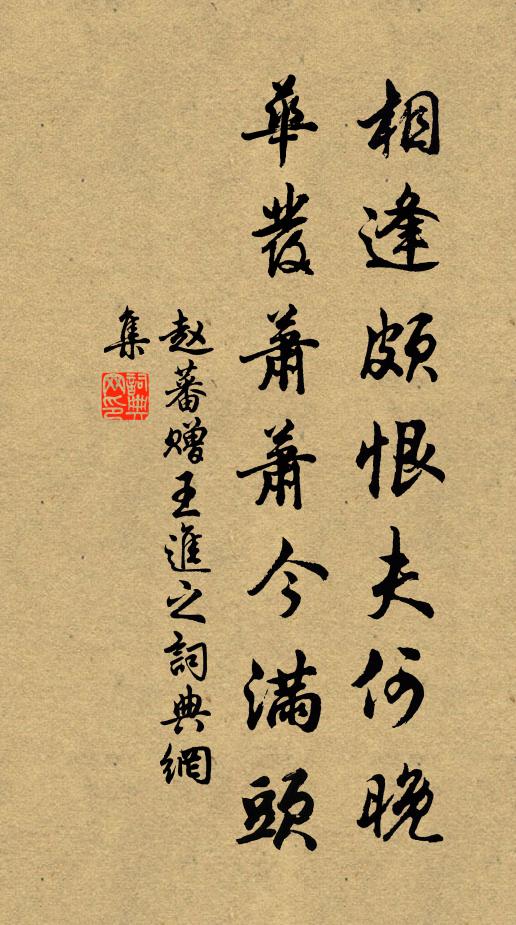 相逢頗恨夫何晚
華發蕭蕭今滿頭
赵蕃赠王進之詞典網
集
詞典